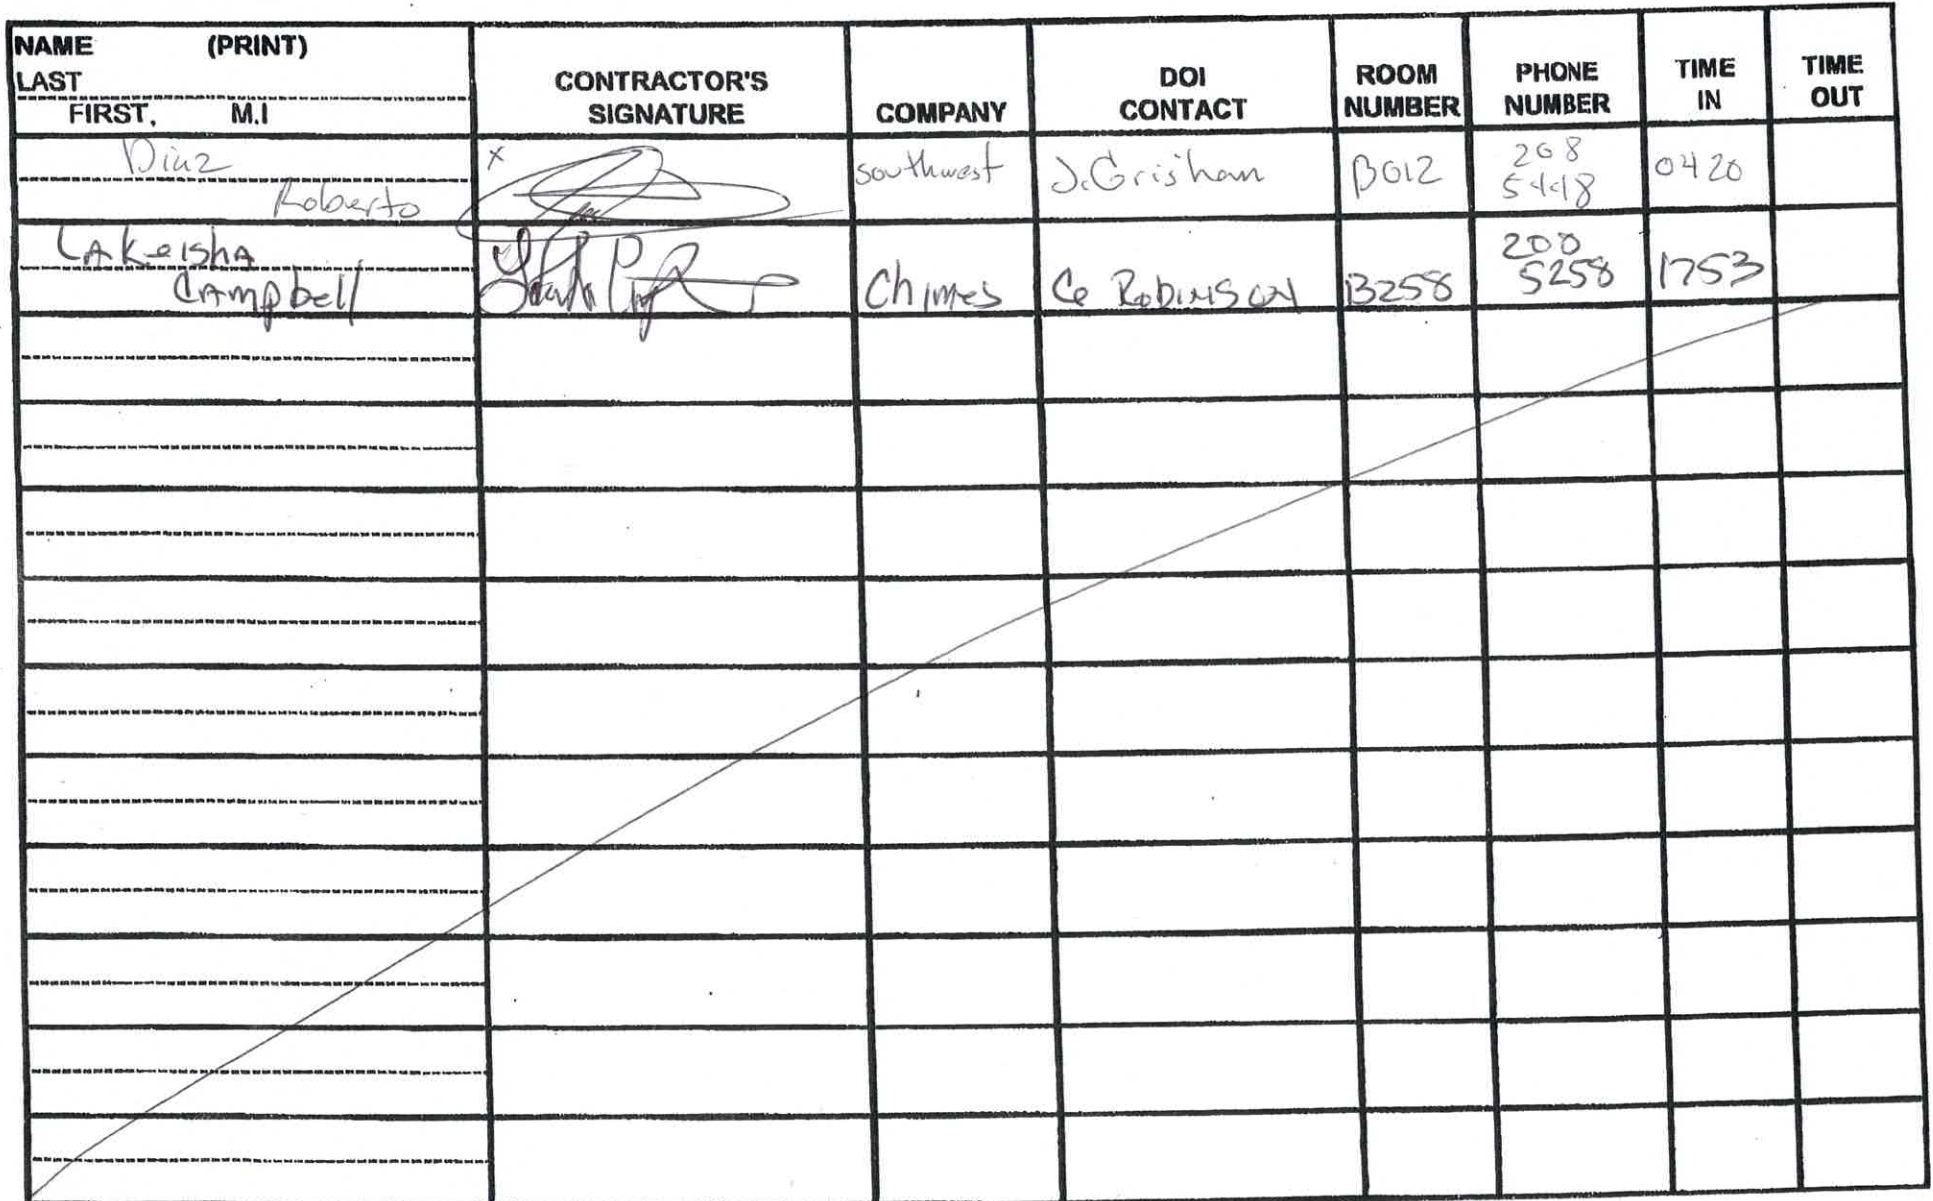 NAME (PRINT)
LAST
FIRST, M.I
CONTRACTOR'S
SIGNATURE
COMPANY
DOI
CONTACT
ROOM
NUMBER
PHONE
NUMBER
TIME
IN
TIME
OUT
Diaz
Roberto
x
southwest
J. Grisham
B012
208
5448
0420
LAKeishA
CAmpbell
Chimes
Ce Robinson
B258
200
5258
1753